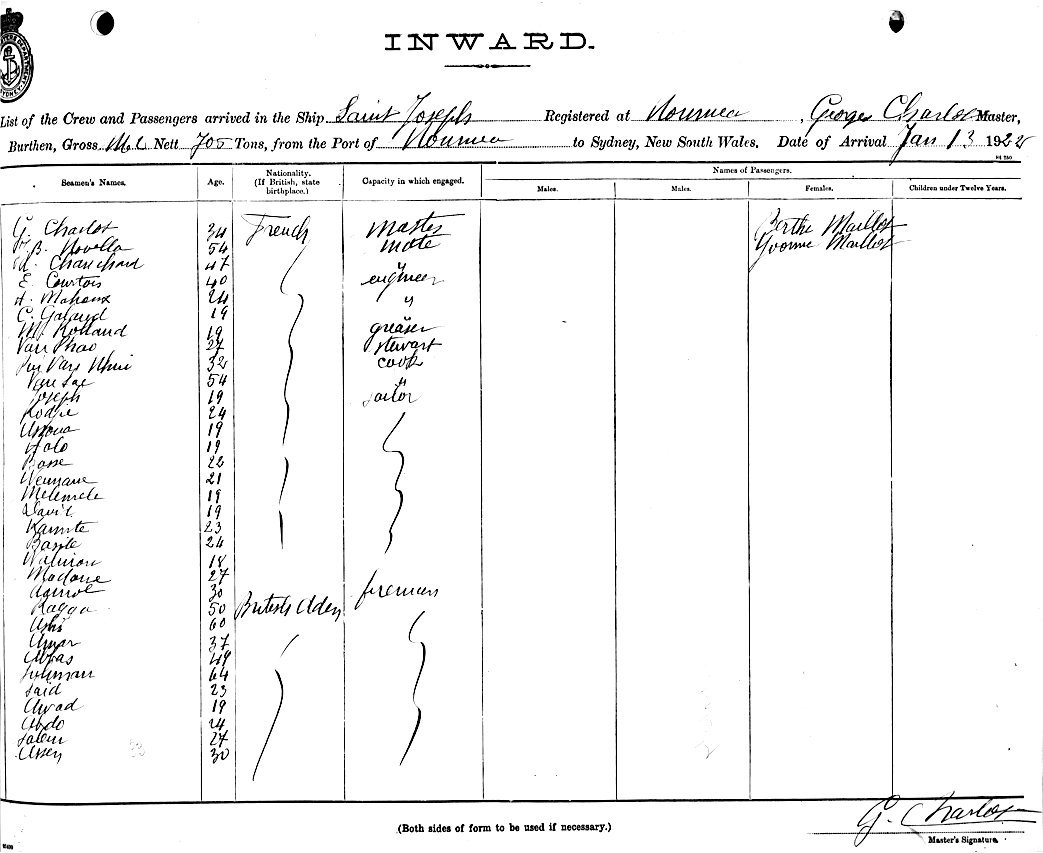 INWARD.
List of the Crew and Passengers arrived in the Ship Saint Joseph Registered at Noumea, Georges Charlot Master,
Burthen, Gross Nett 705 Tons, from the Port of Noumea to Sydney, New South Wales, Date of Arrival Jan 13 1922
Names of Passengers.
Seamen's Names. Age. Nationality. (If British, state birthplace.) Capacity in which engaged. Males. Males. Females. Children under Twelve Years.
G. Charlot 34 French Master Berthe Maillot
B. Novella 54 mate Yvonne Maillot
Chanchard 47 "
E. Courtois 40 engineer
A. Mahoux 24 "
C. Galaud 19
M. Rolland 19 greaser
Van Phao 27 stewart
Van Nhui 32 cook
Van Sae 54 "
Joseph 19 sailor
Kodjie 24
19
Halo 19
Basse 22
Wennane 21
Melemele 19
David 19
Kamite 23
Basile 24
18
Madame 27
30 firemen
Ragga 50 British Aden
60
Omar 37
Abbas 49
Suliman 64
Said 23
Awad 19
Abdo 24
Salem 27
30
(Both sides of form to be used if necessary.)
G. Charlot
Master's Signature.